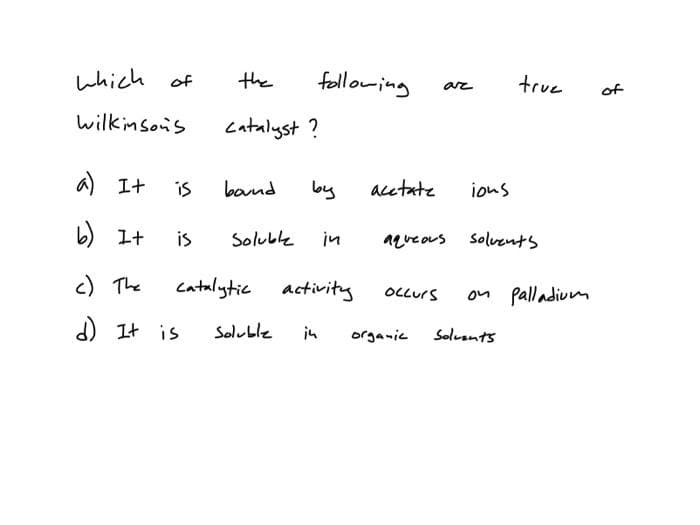 which of the following are true of
Wilkinson's catalyst ?
a) It is bound by acetate ions
b) It is soluble in aqueous solvents
c) The catalytic activity occurs on palladium
d) It is soluble in organic solvents